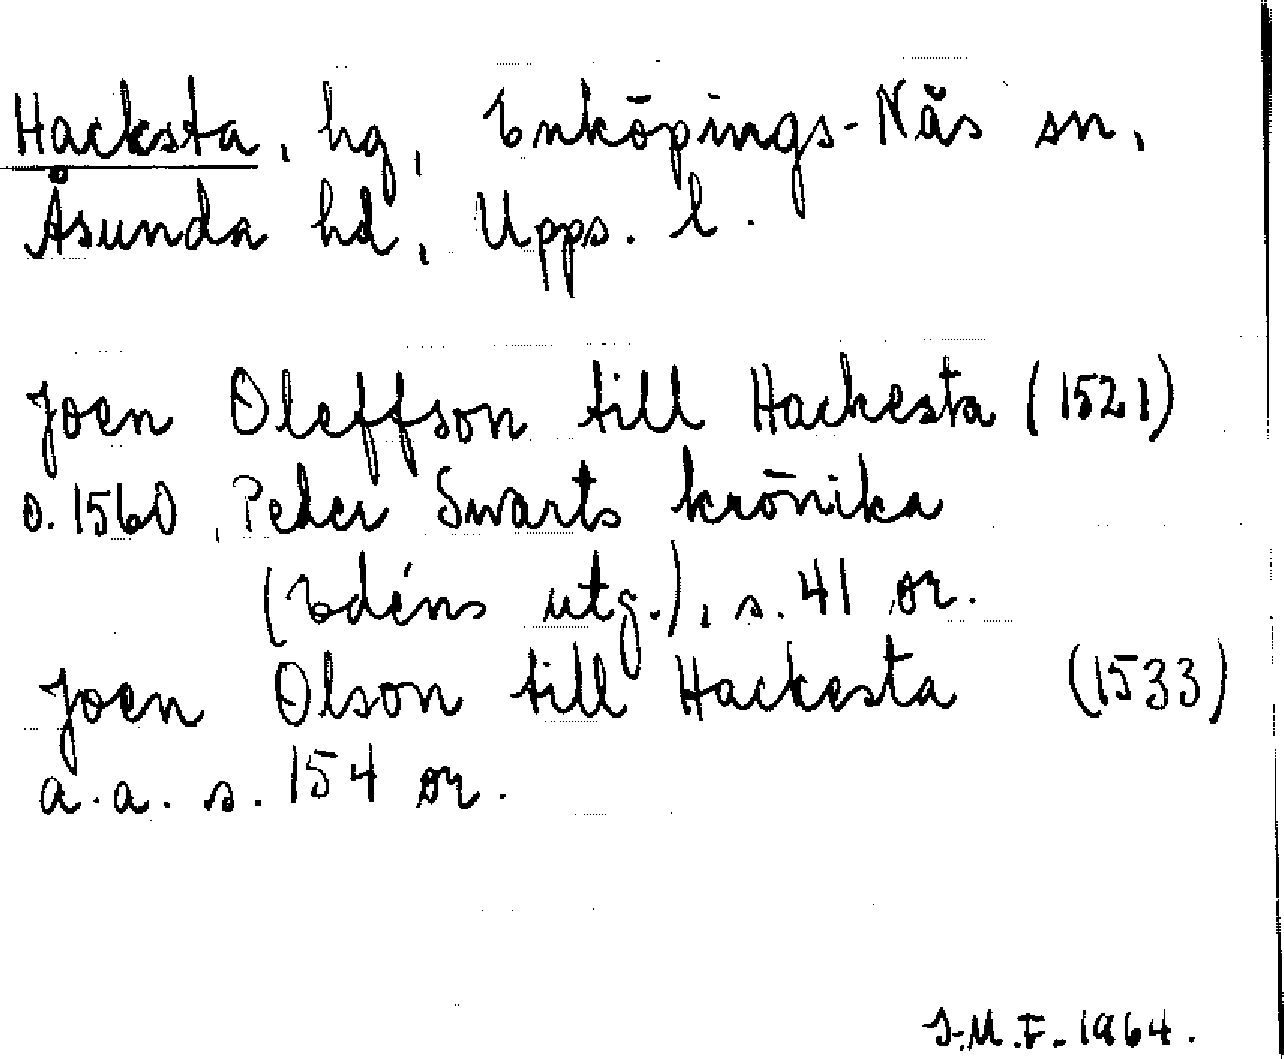 Hacksta, hg, Enköpings-Näs sn,
Åsunda hd, Upps. l.
Joen Oleffson till Hackesta (1521)
o. 1560, Peder Swarts krönika
(Edéns utg.), s. 41 or.
Joen Olson till Hackesta (1533)
a.a. s. 154 or.
J.M.F. 1964.